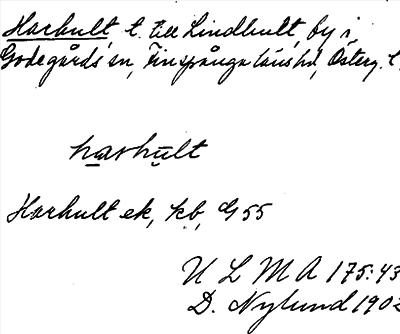 Harhult, t. till Lindhult, by i
Godegårds sn, Finspånga länshd, Österg. l.
harhult
Harhult ek, kb, G 55
U L M A 175:43
D. Nylund 1902